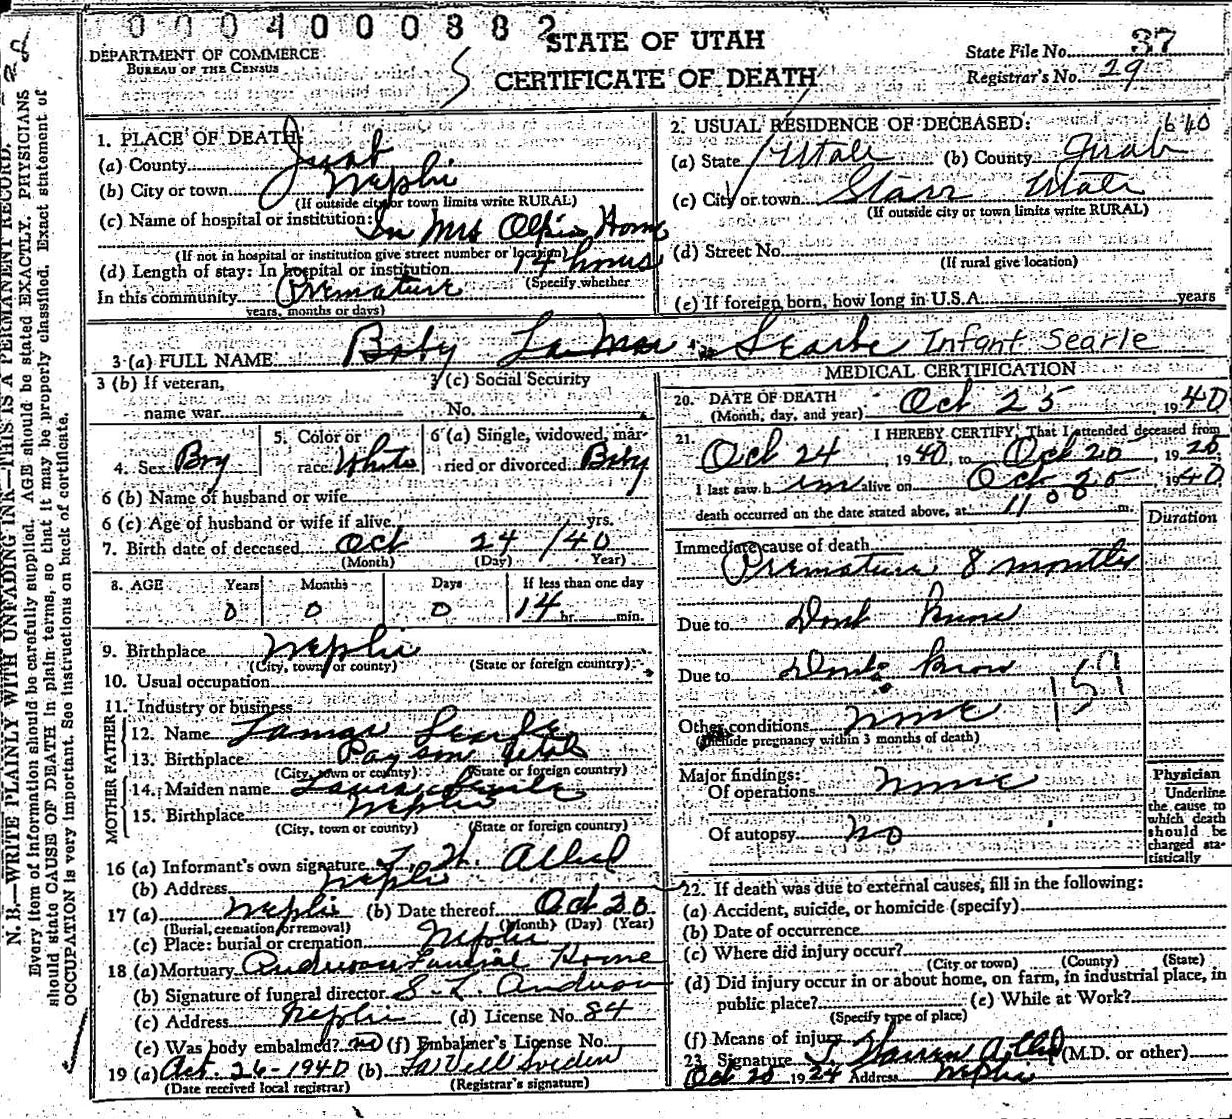 0 0 0 4 0 0 0 8 8 2
STATE OF UTAH
CERTIFICATE OF DEATH
DEPARTMENT OF COMMERCE
BUREAU OF THE CENSUS
State File No. 37
Registrar's No. 29
N. B.—WRITE PLAINLY WITH UNFADING INK—THIS IS A PERMANENT RECORD.
Every item of information should be carefully supplied. AGE should be stated EXACTLY. PHYSICIANS
should state CAUSE OF DEATH in plain terms, so that it may be properly classified. Exact statement of
OCCUPATION is very important. See instructions on back of certificate.
1. PLACE OF DEATH:
(a) County Juab
(b) City or town Nephi
(If outside city or town limits write RURAL)
(c) Name of hospital or institution: In Mrs Olpin Home
(If not in hospital or institution give street number or location)
(d) Length of stay: In hospital or institution 14 hours
(Specify whether
In this community Premature
years, months or days)
2. USUAL RESIDENCE OF DECEASED: 640
(a) State Utah (b) County Juab
(c) City or town Starr Utah
(If outside city or town limits write RURAL)
(d) Street No.
(If rural give location)
(e) If foreign born, how long in U.S.A. years
3 (a) FULL NAME Baby LaMar Searle Infant Searle
3 (b) If veteran,
name war
3 (c) Social Security
No.
4. Sex Boy
5. Color or
race White
6 (a) Single, widowed, mar-
ried or divorced Baby
6 (b) Name of husband or wife
6 (c) Age of husband or wife if alive yrs.
7. Birth date of deceased Oct 24 /40
(Month) (Day) Year)
8. AGE Years Months Days If less than one day
0 0 0 14 hr. min.
9. Birthplace Nephi
(City, town or county) (State or foreign country)
10. Usual occupation
11. Industry or business
FATHER
12. Name Lamar Searle
13. Birthplace Payson Utah
(City, town or county) (State or foreign country)
MOTHER
14. Maiden name Laura
15. Birthplace Nephi
(City, town or county) (State or foreign country)
16 (a) Informant's own signature
(b) Address Nephi
17 (a) Nephi (b) Date thereof Oct
(Burial, cremation or removal) (Month) (Day) (Year)
(c) Place: burial or cremation Nephi
18 (a) Mortuary Anderson Funeral Home
(b) Signature of funeral director S. L. Anderson
(c) Address Nephi (d) License No. 84
(e) Was body embalmed? no (f) Embalmer's License No.
19 (a) Oct. 26-1940 (b) LaVell Sweden
(Date received local registrar) (Registrar's signature)
MEDICAL CERTIFICATION
20. DATE OF DEATH
(Month, day, and year) Oct 25, 1940
21. I HEREBY CERTIFY, That I attended deceased from
Oct 24, 1940, to Oct
I last saw h im alive on Oct 25, 1940
death occurred on the date stated above, at 11 00 m.
Duration
Immediate cause of death
Premature 8 months
Due to Dont know
Due to Dont know
159
Other conditions none
(Include pregnancy within 3 months of death)
Major findings:
Of operations none
Of autopsy no
Physician
Underline
the cause to
which death
should be
charged sta-
tistically
22. If death was due to external causes, fill in the following:
(a) Accident, suicide, or homicide (specify)
(b) Date of occurrence
(c) Where did injury occur?
(City or town) (County) (State)
(d) Did injury occur in or about home, on farm, in industrial place, in
public place? (e) While at Work?
(Specify type of place)
(f) Means of injury
23. Signature (M.D. or other)
Oct 1924 Address Nephi